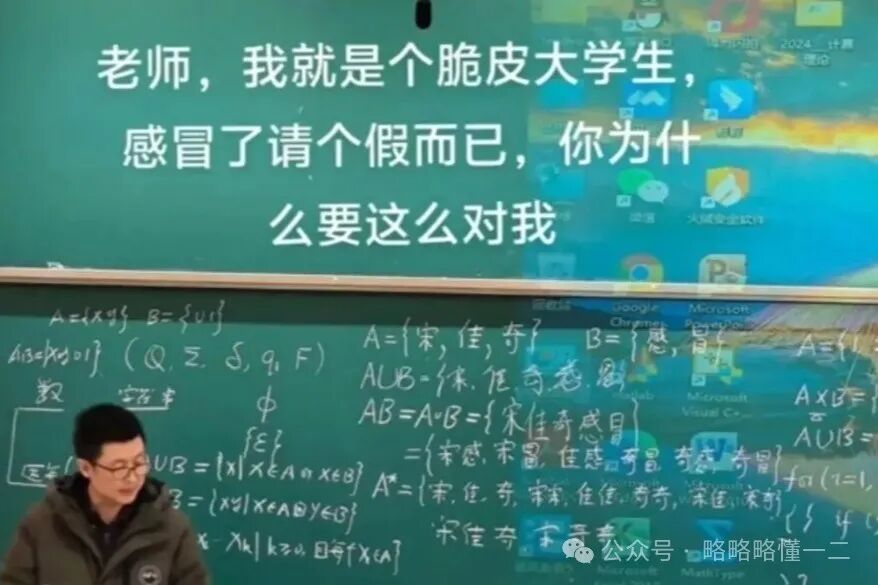 老师，我就是个脆皮大学生，
感冒了请个假而已，你为什
么要这么对我
2024__计算
理论
微信
火绒安全软件
Google
Chrome
Microsoft
PowerPoint
Matlab
Microsoft
Visual C++
MathType
A={xy} B={01}
AB={xy01} (Q, Σ, δ, q, F)
数 字符串
φ
{ε}
AUB={x|x∈A或x∈B}
B={xy|x∈A且y∈B}
xk|k≥0,且每个x∈A}
A={宋,佳,奇} B={感,冒}
AUB={宋,佳,奇,感,冒}
AB=A∘B={宋佳奇感冒}
={宋感,宋冒,佳感,奇冒,奇感,奇冒}
A*={宋,佳,奇,宋宋,佳佳,奇奇,宋佳,宋奇
宋佳奇,宋奇奇
A={1,
AXB={
AUB=
for(i=1,
{ } if (
公众号 · 略略略懂一二